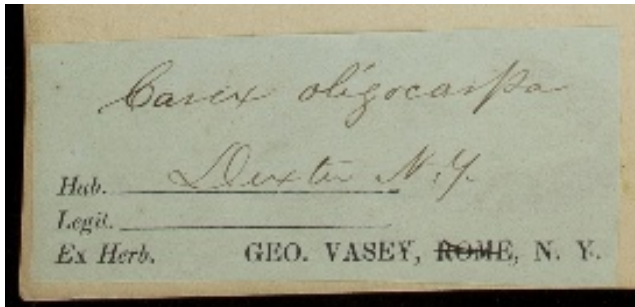 Carex oligocarpa
Hab. Dexter N.Y.
Legit.
Ex Herb. GEO. VASEY, ROME, N. Y.